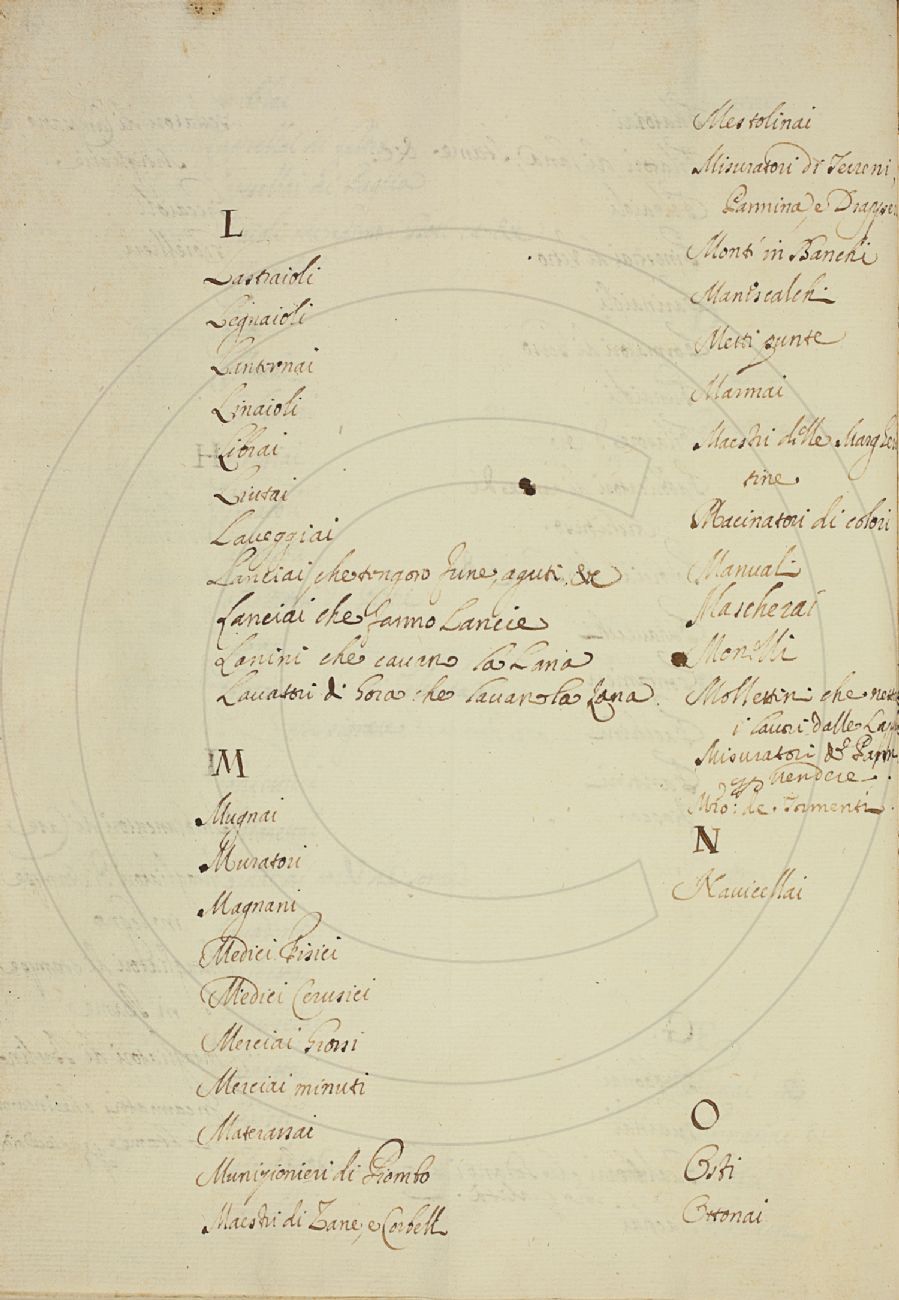 L
Lastraioli
Legnaioli
Lanternai
Linaioli
Librai
Liutai
Laveggiai
Lanciai, che tengono fune, aguti, &c
Lanciai che fanno Lancie
Lanini che cavano la Lana
Lavatori di Gora che lavano la Lana
M
Mugnai
Muratori
Magnani
Medici Fisici
Medici Cerusici
Merciai Grossi
Merciai minuti
Materassai
Munizionieri di Piombo
Maestri di Zane, e Corbelli
Mestolinai
Misuratori di Terreni,
Pannina, e
Monti in Banchi
Maniscalchi
Metti punte
Marmai
Maestri delle
tine
Macinatori di colori
Manuali
Mascherai
Monelli
Mollettini che
i lavori dalle
Misuratori di
vendere
N
Navicellai
O
Osti
Ottonai